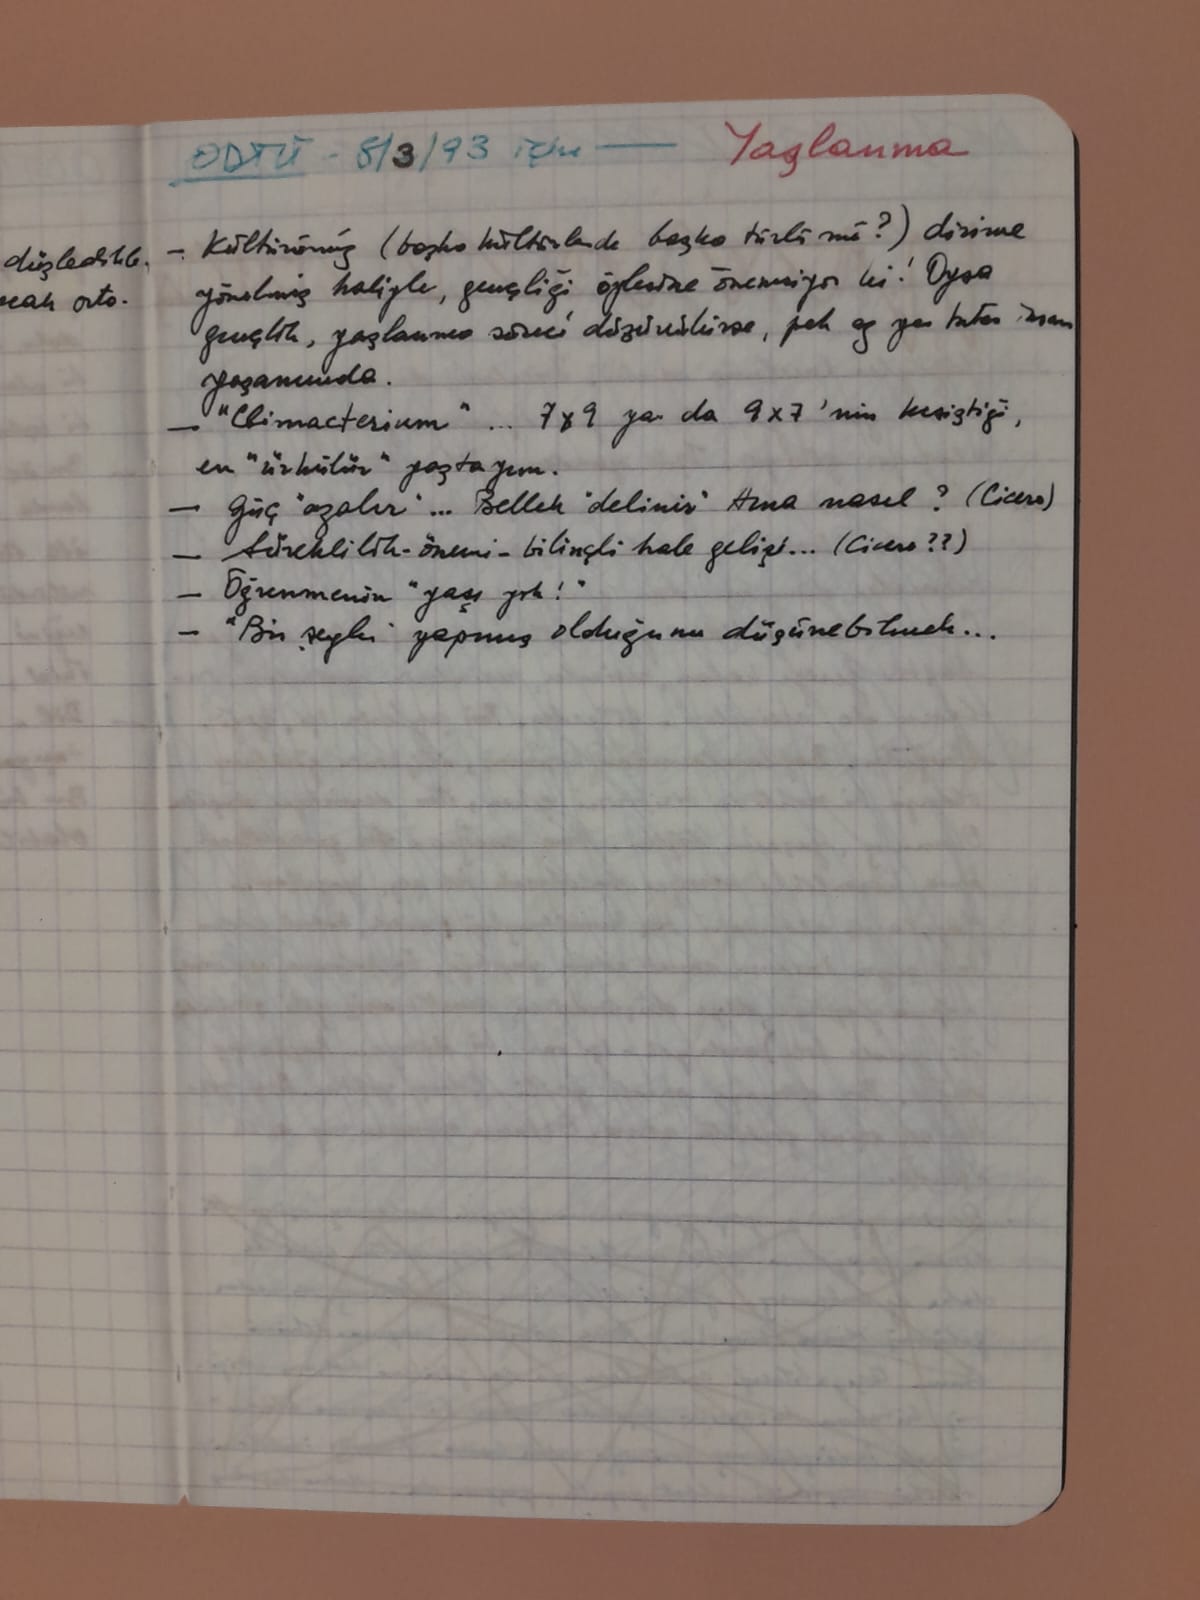 ODTÜ - 8/3/93 için — Yaşlanma
düşledikle.
- Kültürümüz (başka kültürlerde başka türlü mü?) dirime
orta.
yönelmiş haliyle, gençliği öylesine önemsiyor ki! Oysa
gençlik, yaşlanma süreci düşünülürse, pek az yer tutar insan
yaşamında.
- "Climacterium" ... 7x9 ya da 9x7'nin kesiştiği,
en "ürkülür" yaştayım.
- Güç "azalır"... Bellek "delinir" Ama nasıl? (Cicero)
- Süreklilik-önemi-bilinçli hale gelişi... (Cicero??)
- Öğrenmenin "yaşı yok!"
- "Bir şeyler" yapmış olduğunu düşünebilmek...